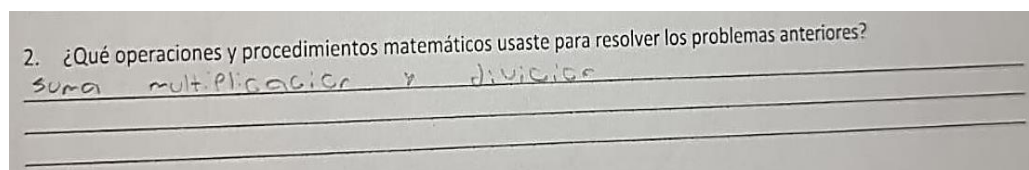 2. ¿Qué operaciones y procedimientos matemáticos usaste para resolver los problemas anteriores?
suma multiplicacion y divicion